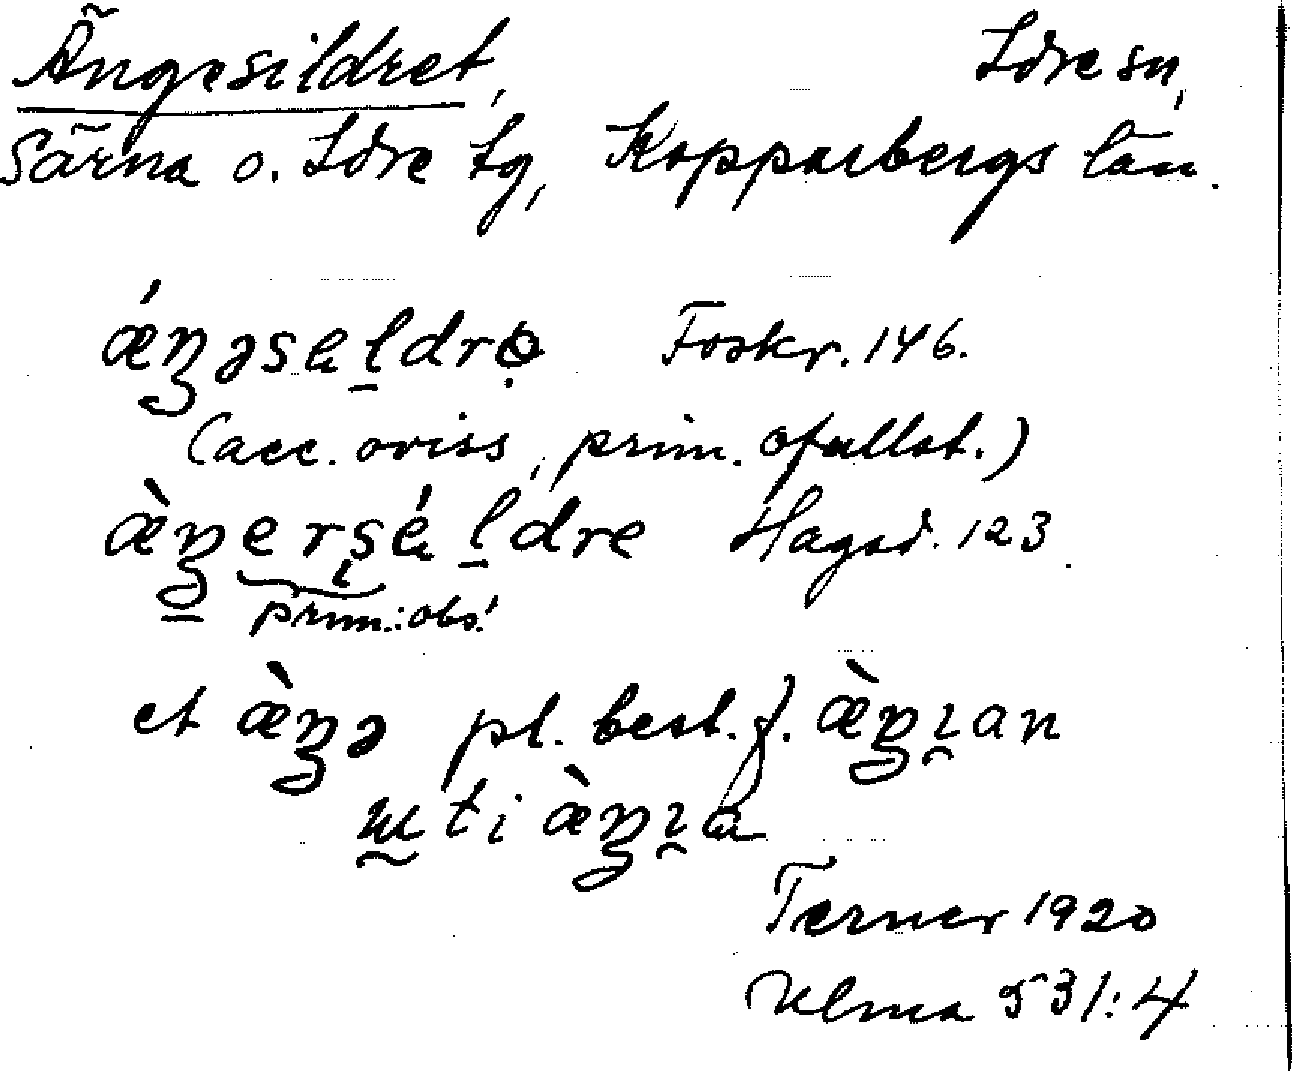 Ängesildret, Idre sn,
Särna o. Idre tg, Kopparbergs län.
ǽŋəse̜l̠drọ Foskr. 146.
(acc. oviss, prim. ofullst.)
æ̀ŋerşé̜l̠dre Hagsd. 123.
prim.: obs!
et æ̀ŋə pl. best. f. æ̀ŋɪan
uti æ̀ŋɪa
Terner 1920
Ulma 531:4